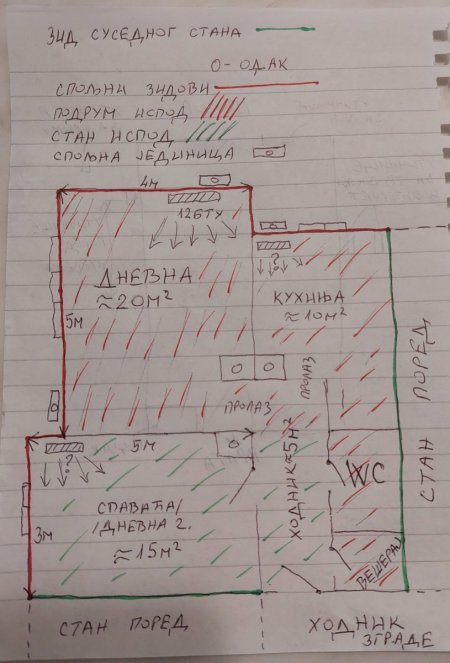 ЗИД СУСЕДНОГ СТАНА
О-ОЏАК
СПОЉНИ ЗИДОВИ
ПОДРУМ ИСПОД
СТАН ИСПОД
СПОЉНА ЈЕДИНИЦА
4М
12БТУ
ДНЕВНА
≈20М²
5М
?
КУХИЊА
≈10М²
О О
ПРОЛАЗ
ПРОЛАЗ
СТАН ПОРЕД
5М
О
?
ХОДНИК≈5М²
WC
СПАВАЋА/
/ДНЕВНА 2.
≈15М²
3М
ВЕШЕРАЈ
СТАН ПОРЕД
ХОДНИК
ЗГРАДЕ